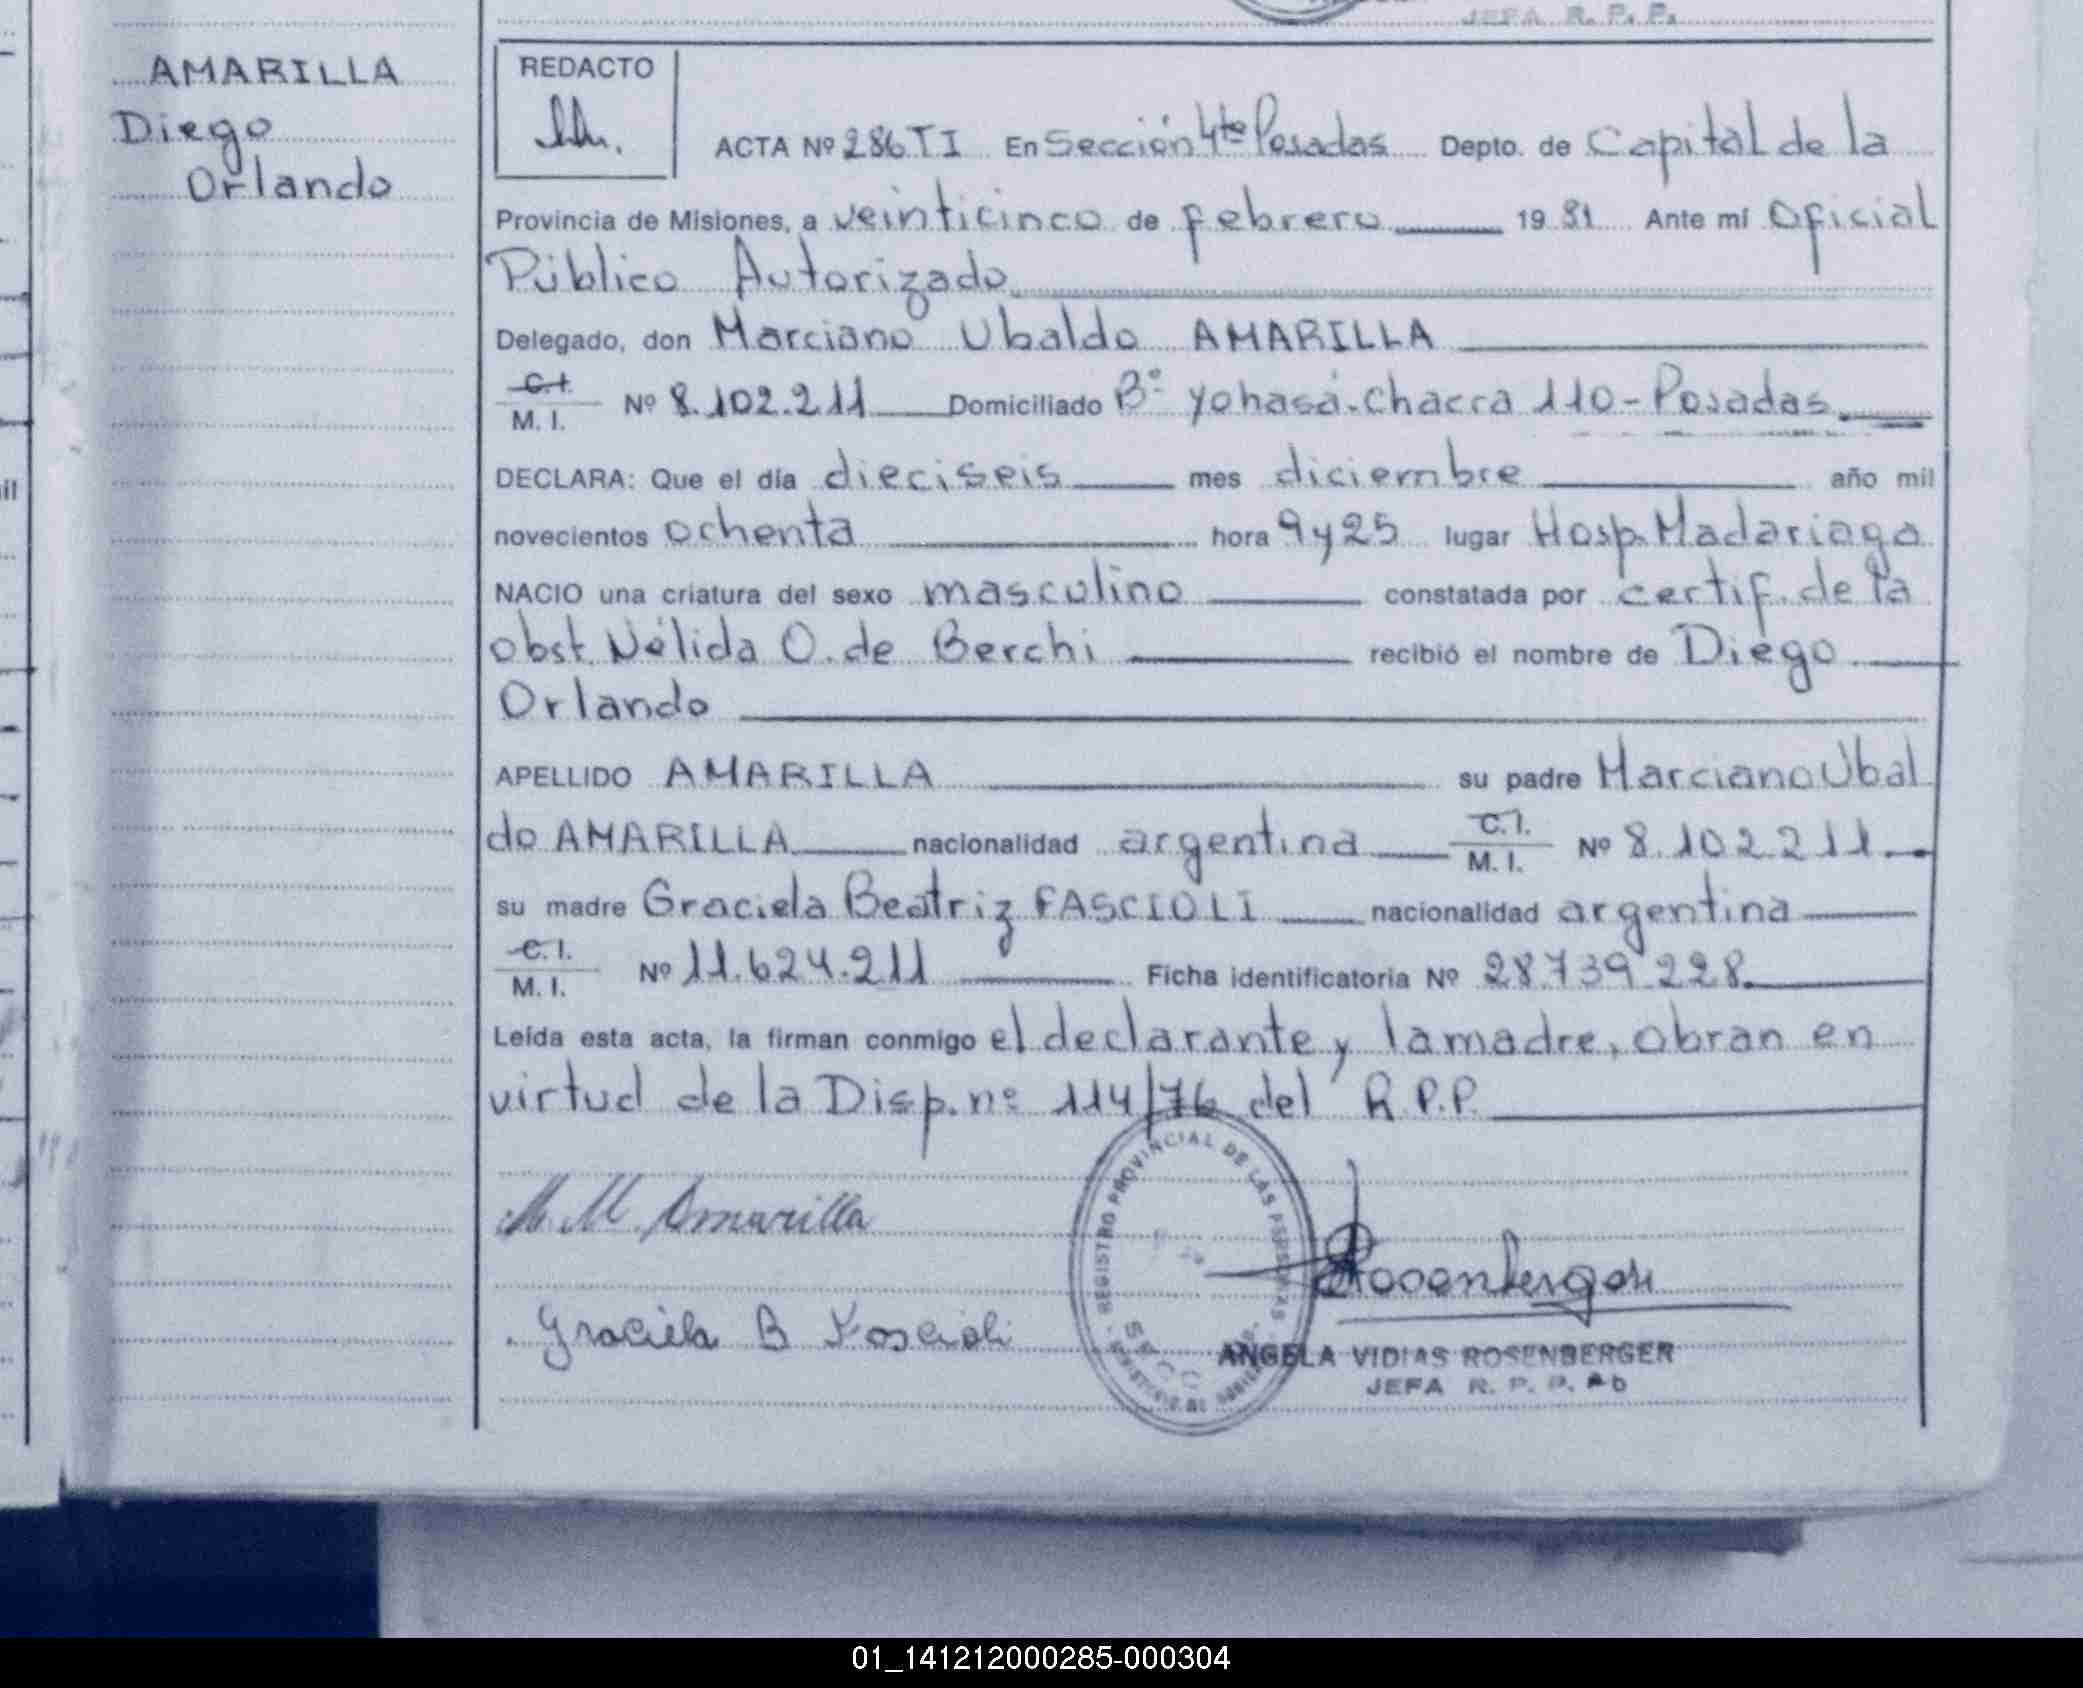 JEFA R. P. P.
AMARILLA
Diego
Orlando
REDACTO
ACTA Nº 286 TI En Sección 4ta Posadas Depto. de Capital de la
Provincia de Misiones, a veinticinco de febrero 19 81 Ante mí Oficial
Público Autorizado
Delegado, don Marciano Ubaldo AMARILLA
C.I.
M. I. Nº 8.102.211 Domiciliado Bº Yohasá-Chacra 110-Posadas
DECLARA: Que el día dieciseis mes diciembre año mil
novecientos ochenta hora 9 y 25 lugar Hosp. Madariaga
NACIO una criatura del sexo masculino constatada por certif. de la
obst. Nélida O. de Berchi recibió el nombre de Diego
Orlando
APELLIDO AMARILLA su padre Marciano Ubal
do AMARILLA nacionalidad argentina C.I.
M. I. Nº 8.102.211
su madre Graciela Beatriz FASCIOLI nacionalidad argentina
C.I.
M. I. Nº 11.624.211 Ficha identificatoria Nº 28.739.228
Leída esta acta, la firman conmigo el declarante y la madre, obran en
virtud de la Disp. nº 114/76 del R.P.P.
REGISTRO PROVINCIAL DE LAS PERSONAS
M. M. Amarilla
Rosenberger
Graciela B Fascioli
ANGELA VIDIAS ROSENBERGER
JEFA R. P. P.
01_141212000285-000304